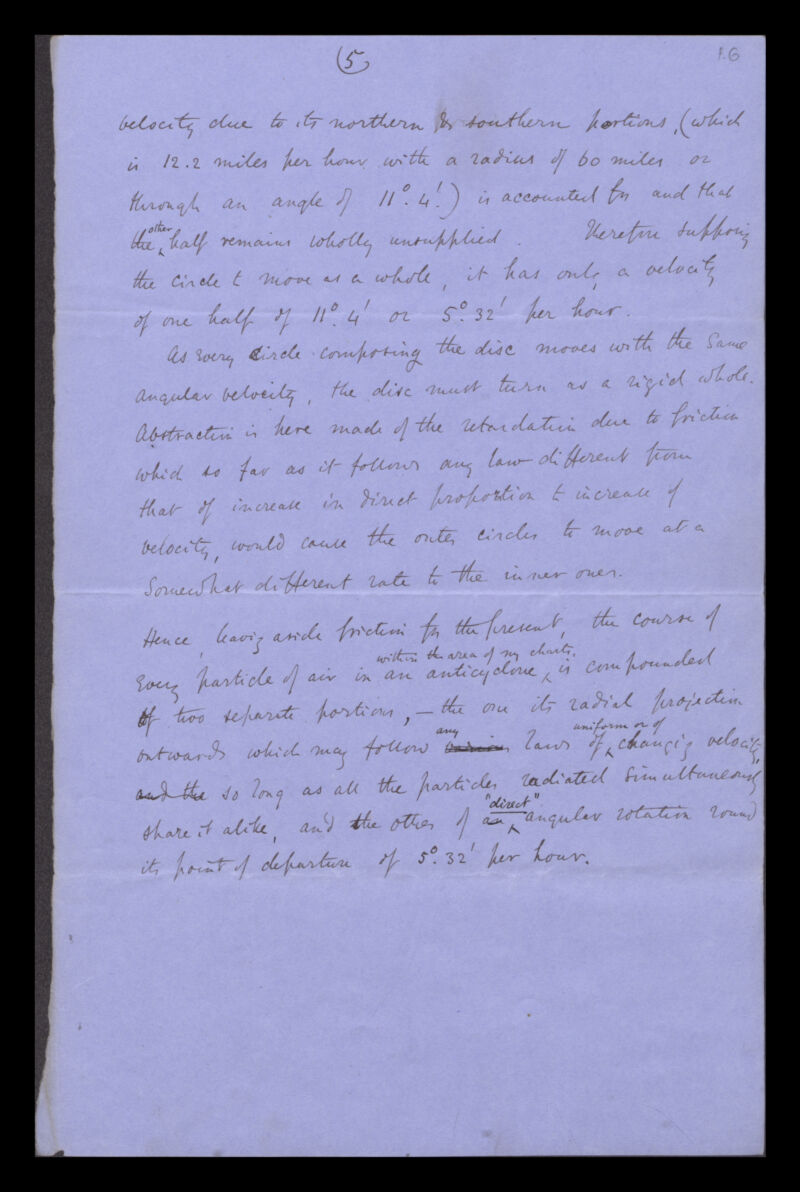 (5)
16
velocity due to its northern & southern portions, (which
is 12.2 miles per hour with a radius of 60 miles or
through an angle of 11°. 4'.) is accounted for and that
the other half remains wholly unsupplied. Therefore supposing
the circle to move as a whole, it has only a velocity
of one half of 11°. 4' or 5°. 32' per hour.
As every circle composing the disc moves with the same
angular velocity, the disc must turn as a rigid whole.
Abstraction is here made of the retardation due to friction
which so far as it follows any law different from
that of increase in direct proportion to increase of
velocity, would cause the outer circles to move at a
somewhat different rate to the inner ones.
Hence, leaving aside friction for the present, the course of
within the area of my charts,
every particle of air in an anticyclone, is compounded
of two separate portions, — the one its radial projection
outwards which may follow any laws of uniform or of changing velocity,
and the so long as all the particles radiated simultaneously
share it alike, and the other of a "direct" angular rotation round
its point of departure of 5°. 32' per hour.